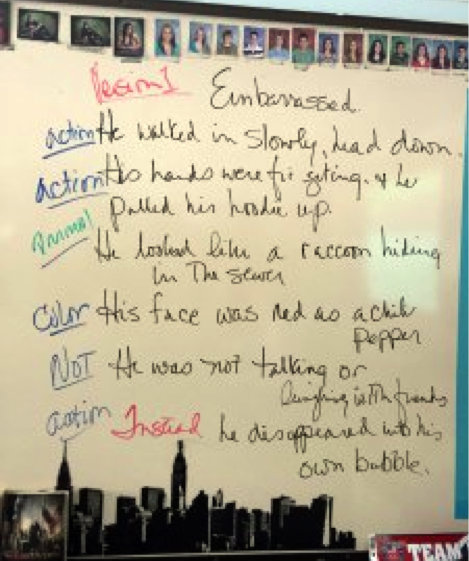 Version 1 Embarrassed.
action He walked in slowly, head down.
action His hands were figiting. & he
pulled his hoodie up.
Animal
He looked like a raccoon hiding
in The sewer
Color His face was red as a chili
pepper
NOT He was not talking or
laughing with friends
action Instead he disappeared into his
own bubble.
TEAM